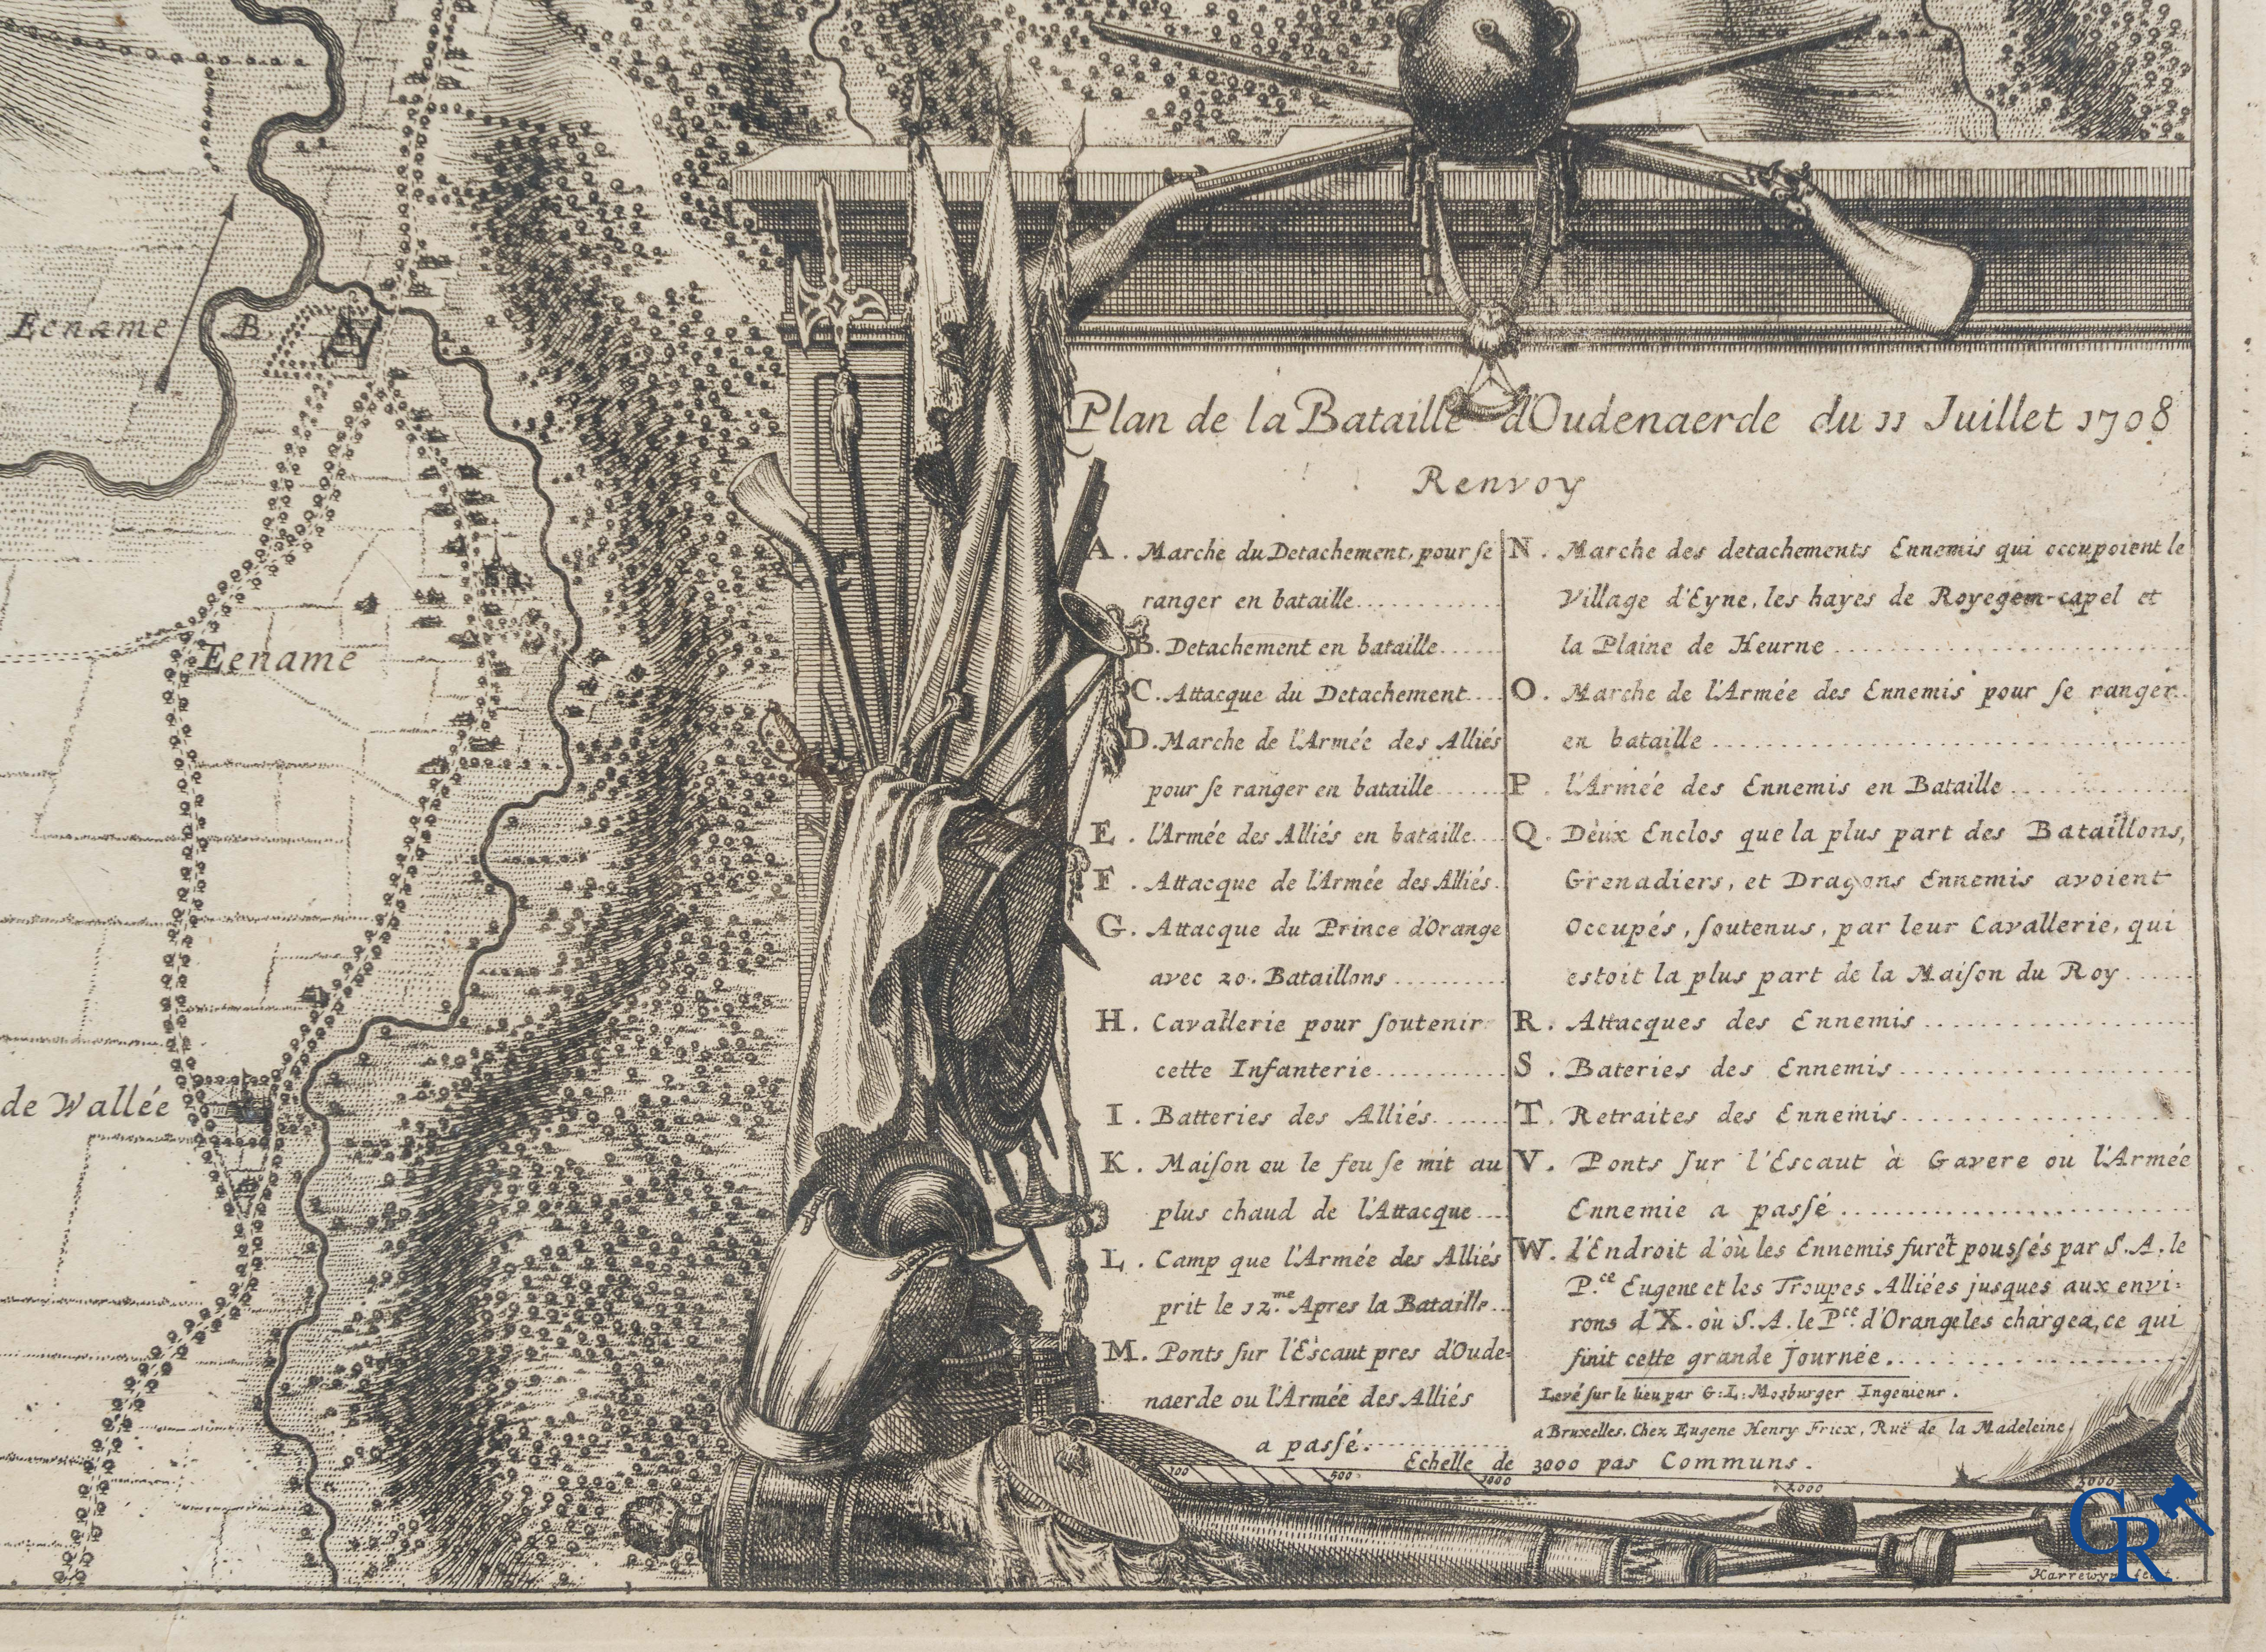 Eename
B.
Eename
de Wallée
Plan de la Bataille d'Oudenaerde du 11 Juillet 1708
Renvoy
A. Marche du Detachement, pour ſe
ranger en bataille..........
B. Detachement en bataille......
C. Attacque du Detachement....
D. Marche de l'Armée des Alliés
pour ſe ranger en bataille......
E. l'Armée des Alliés en bataille....
F. Attacque de l'Armée des Alliés.
G. Attacque du Prince d'Orange
avec 20. Bataillons..........
H. Cavallerie pour ſoutenir
cette Infanterie............
I. Batteries des Alliés.......
K. Maiſon ou le feu ſe mit au
plus chaud de l'Attacque....
L. Camp que l'Armée des Alliés
prit le 12.me Apres la Bataille..
M. Ponts ſur l'Escaut pres d'Oude=
naerde ou l'Armée des Alliés
a paſſé.............
N. Marche des detachements Ennemis qui occupoient le
Village d'Eyne, les hayes de Royegem-capel et
la Plaine de Heurne..............................
O. Marche de l'Armée des Ennemis pour ſe ranger..
en bataille........................................
P. l'Armée des Ennemis en Bataille..............
Q. Deux Enclos que la plus part des Bataillons,
Grenadiers, et Dragons Ennemis avoient
Occupés, ſoutenus, par leur Cavallerie, qui
estoit la plus part de la Maiſon du Roy......
R. Attacques des Ennemis.......................
S. Bateries des Ennemis.........................
T. Retraites des Ennemis........................
V. Ponts ſur l'Escaut à Gavere ou l'Armée
Ennemie a paſſé..............................
W. l'Endroit d'où les Ennemis furẽt pouſſés par S.A. le
P.ce Eugene et les Troupes Alliées jusques aux envi=
rons d'X. où S.A. le P.ce d'Orange les chargea, ce qui
finit cette grande Journée........................
Levé ſur le lieu par G: L: Mosburger Ingenieur.
a Bruxelles. Chez Eugene Henry Fricx, Ruë de la Madeleine
Echelle de 3000 pas Communs.
100 500 1000 2000 3000
CR
Harrewyn fec.